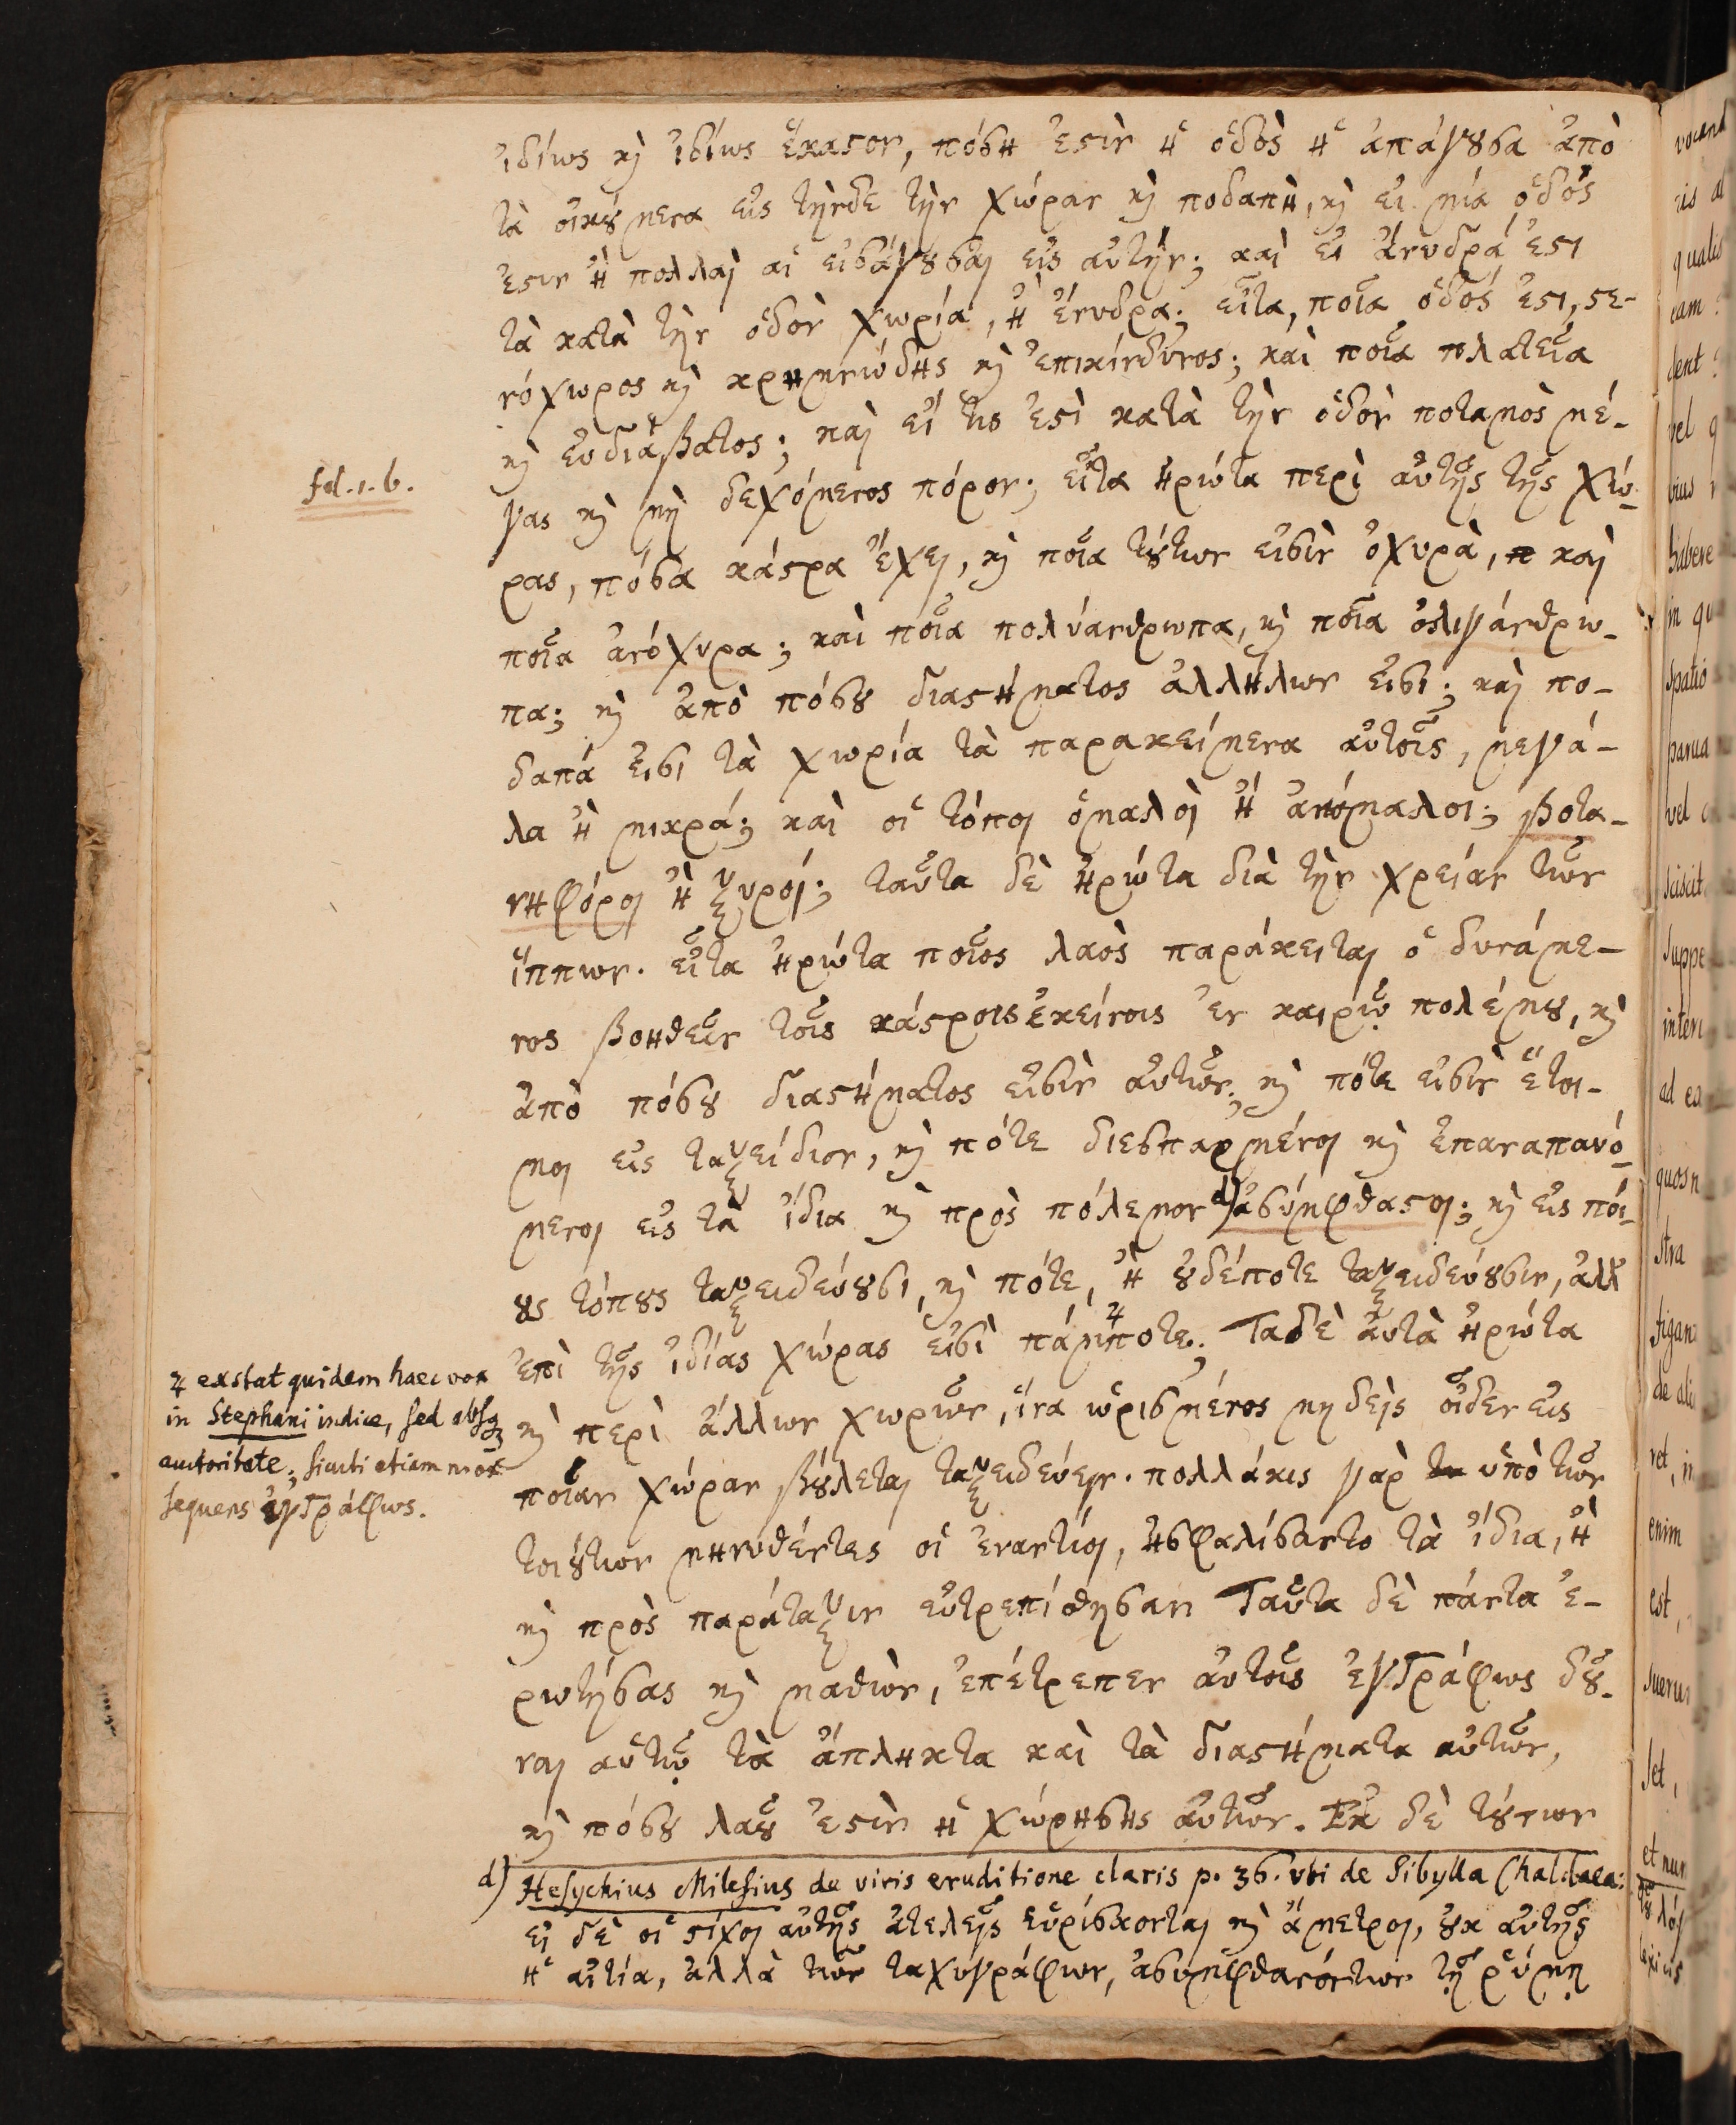 ἰδίως κὶ ἰδίως ἕκαστον, πόση ἐστὶν ἡ ὁδὸς ἡ ἀπάγουσα ἀπὸ
τὰ οἰκούμενα εἰς τήνδε τὴν χώραν κὶ ποδαπὴ, κὶ εἰ μία ὁδὸς
ἐστιν ἢ πολλαὶ αἱ εἰσάγουσαι εἰς αὐτήν; καὶ εἰ ἄνυδρά ἐστι
τὰ κατὰ τὴν ὁδὸν χωρία, ἢ ἔνυδρα; εἶτα, ποῖα ὁδός ἐστι, στε-
νόχωρος κὶ κρημνώδης κὶ ἐπικίνδυνος; καὶ ποῖα πλατεῖα
κὶ εὐδιάβατος; καὶ εἴ τις ἐστὶ κατὰ τὴν ὁδὸν ποταμὸς μέ-
γας κὶ μὴ δεχόμενος πόρον; εἶτα ἠρώτα περὶ αὐτῆς τῆς χώ-
fol. 1. b.
ρας, πόσα κάστρα ἔχει, κὶ ποῖα τούτων εἰσὶν ὀχυρὰ, καὶ
ποῖα ἀνόχυρα; καὶ ποῖα πολυάνθρωπα, κὶ ποῖα ὀλιγάνθρω-
πα; κὶ ἀπὸ πόσου διαστήματος ἀλλήλων εἰσι; καὶ πο-
δαπά εἰσι τὰ χωρία τὰ παρακείμενα αὐτοῖς, μεγά-
λα ἢ μικρά; καὶ οἱ τόποι ὁμαλοὶ ἢ ἀνόμαλοι; βοτα-
νηφόροι ἢ ξυροί; ταῦτα δὲ ἠρώτα διὰ τὴν χρείαν τῶν
ἵππων. εἶτα ἠρώτα ποῖος λαὸς παράκειται ὁ δυνάμε-
νος βοηθεῖν τοῖς κάστροις ἐκείνοις ἐν καιρῷ πολέμου, κὶ
ἀπὸ πόσου διαστήματος εἰσὶν αὐτῶν; κὶ πότε εἰσὶν ἕτοι-
μοι εἰς ταξείδιον, κὶ πότε διεσπαρμένοι κὶ ἐπαναπαυό-
μενοι εἰς τὰ ἴδια κὶ πρὸς πόλεμον d) ἀσύμφθαστοι; κὶ εἰς ποί-
ους τόπους ταξειδεύουσι, κὶ πότε, ἢ οὐδέποτε ταξειδεύουσιν, ἀλλ'
ἐπὶ τῆς ἰδίας χώρας εἰσὶ πάμποτε. Τα δὲ αὐτὰ ἠρώτα
κὶ περὶ ἄλλων χωριῶν, ἵνα ὡρισμένος μηδεὶς οἶδεν εἰς
ποίαν χώραν βούλεται ταξειδεύειν. πολλάκις γὰρ ὑπὸ τῶν
τοιούτων μηνυθέντες οἱ ἐναντίοι, ἠσφαλίσαντο τὰ ἴδια, ἢ
κὶ πρὸς παράταξιν εὐτρεπίσθησαν Ταῦτα δὲ πάντα ἐ-
ρωτήσας κὶ μαθὼν, ἐπέτρεπεν αὐτοῖς ἐγγράφως δοῦ-
ναι αὐτῷ τὰ ἄπληκτα καὶ τὰ διαστήματα αὐτῶν,
κὶ πόσου λαοῦ ἐστὶν ἡ χώρησης αὐτῶν. Ἐκ δὲ τούτων
♃ exstat quidem haec vox
in Stephani indice, sed absq
auctoritate; sicuti etiam mox
sequens ἐγγράφως.
d) Hesychius Milesius de viris eruditione claris p. 36. vbi de Sibylla Chaldaea:
εἰ δὲ οἱ στίχοι αὐτῆς ἀτελεῖς εὑρίσκονται κὶ ἄμετροι, οὐκ αὐτῆς
ἡ αἰτία, ἀλλὰ τῶν ταχυγράφων, ἀσυμφθασάντων τῇ ῥύμῃ